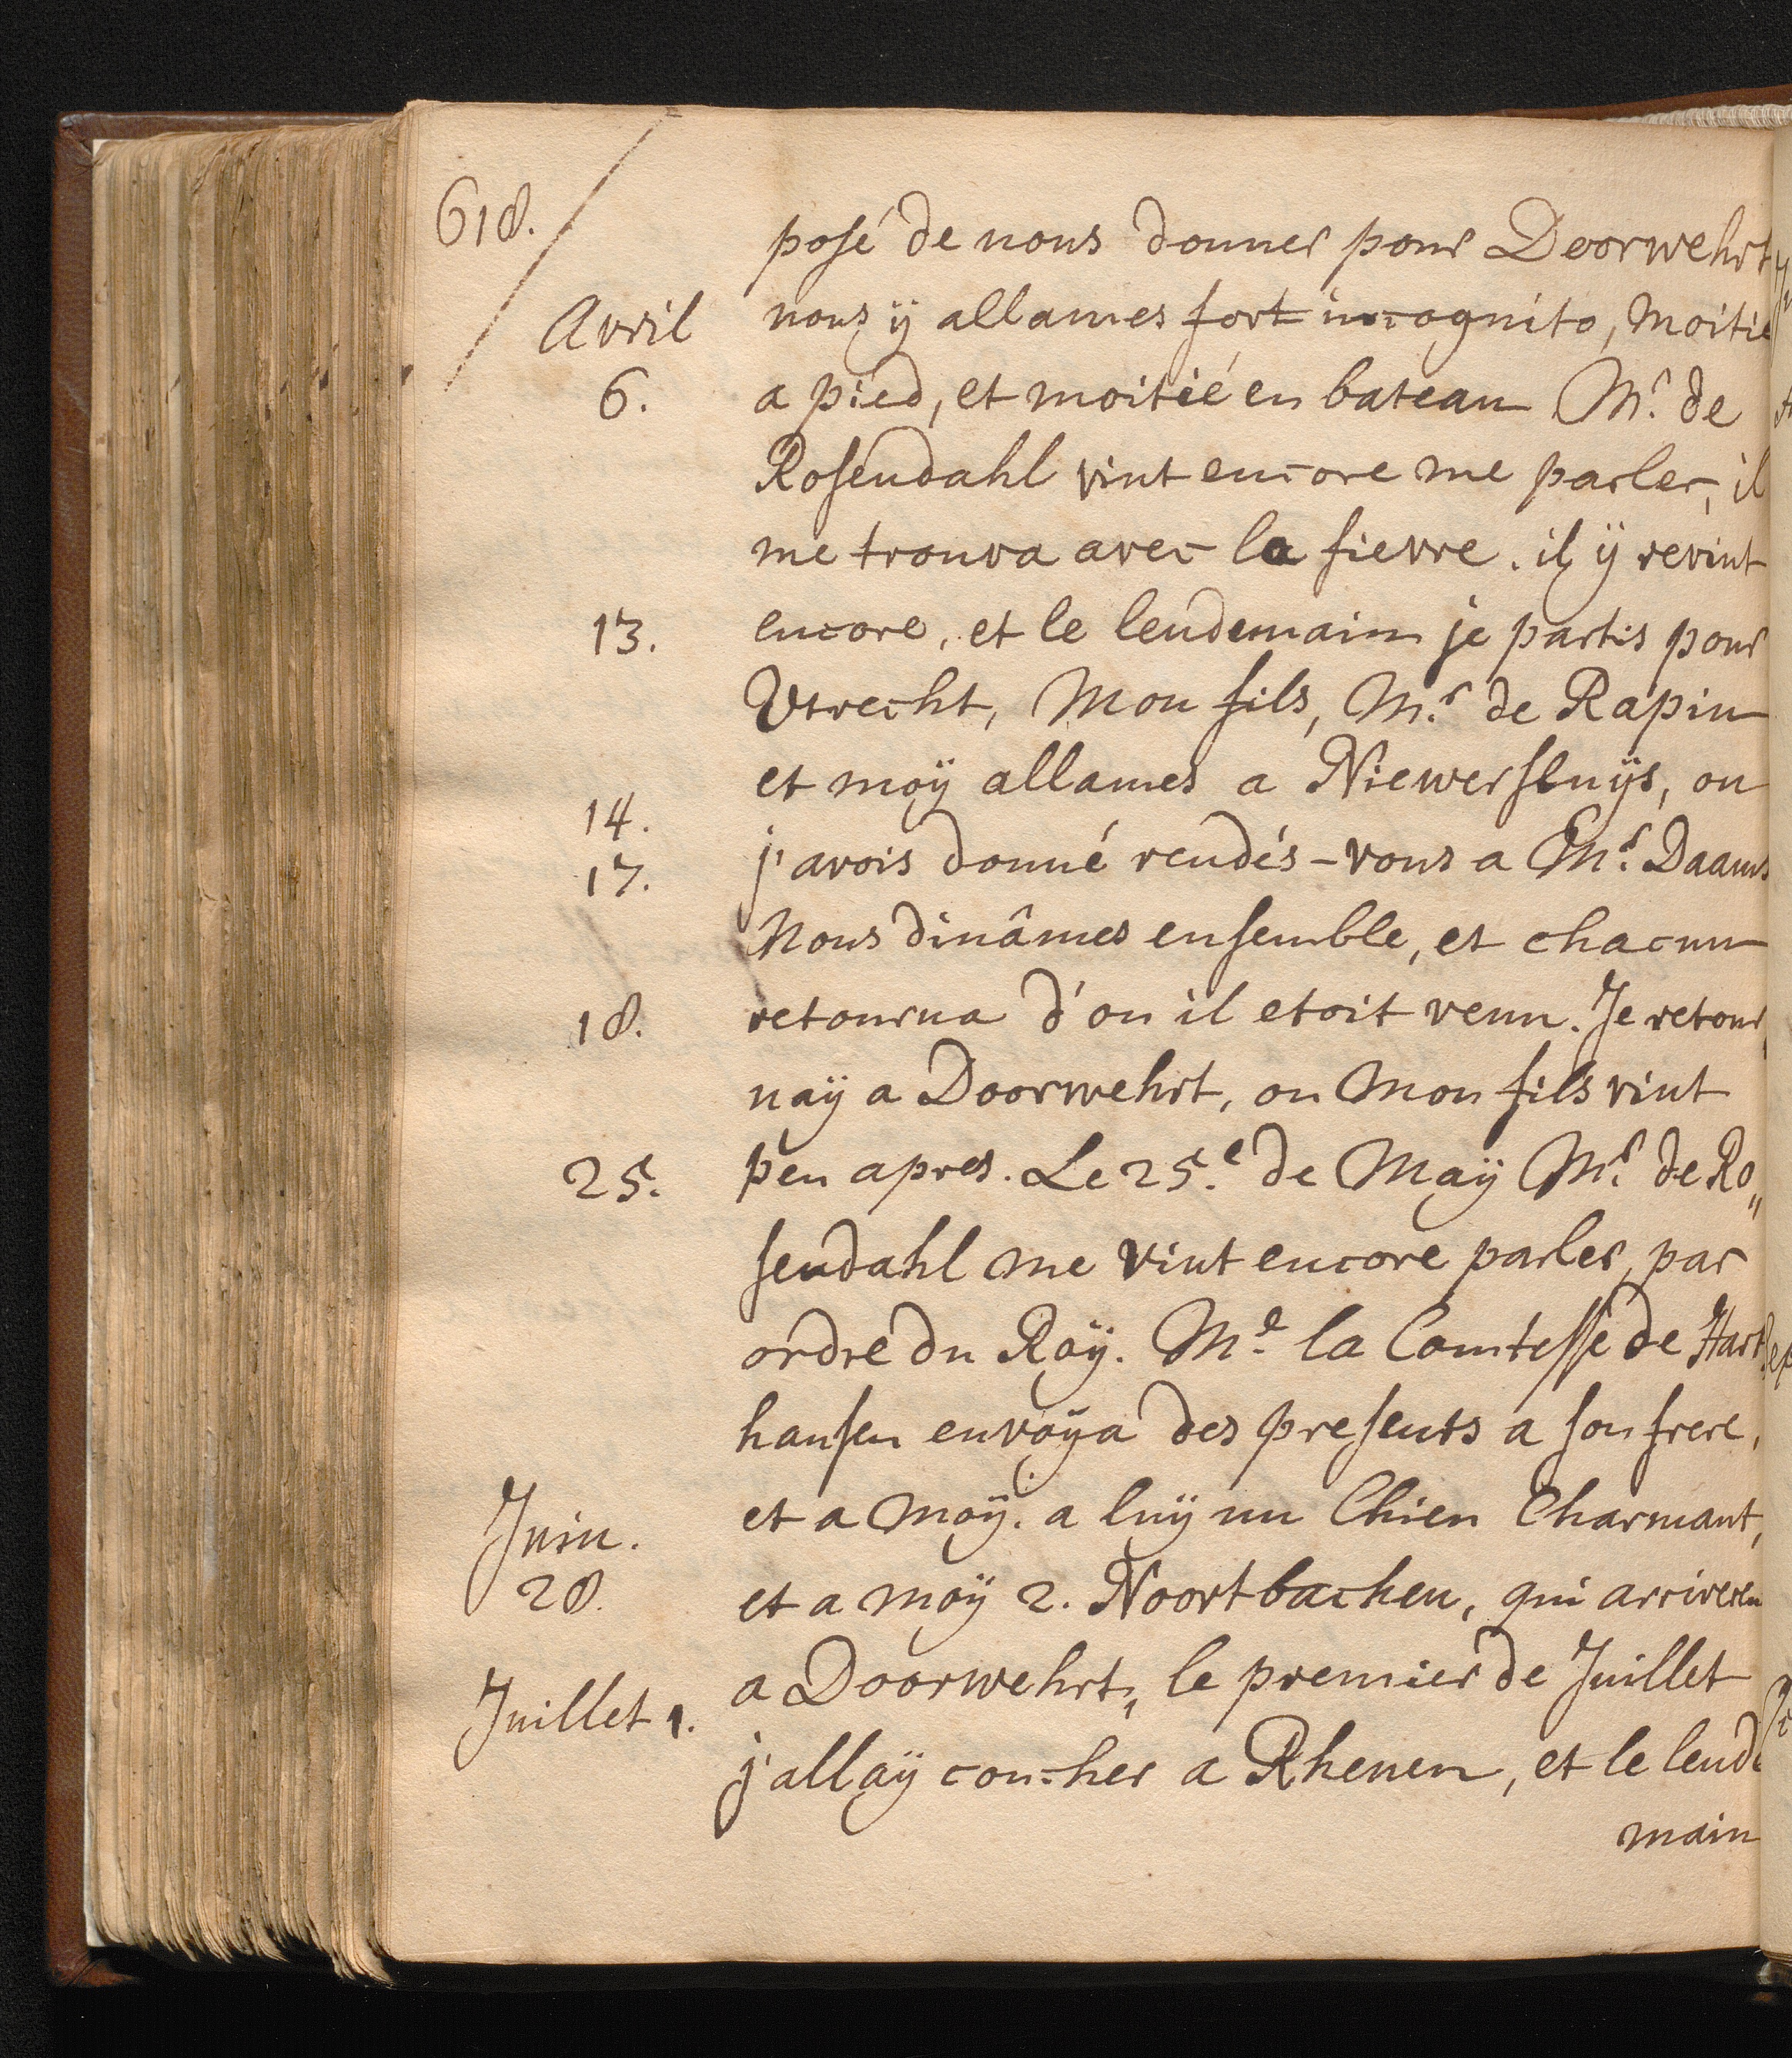 618.
posé de nous donner pour Doorwehrt
Avril nous ÿ allames fort incognito, moitié
6. a pied, et moitié en bateau Mr. de
Rosendahl vint encore me parler, il
me trouva avec la fievre. il ÿ revint
13. encore, et le lendemain je partis pour
Utrecht, Mon fils, Mr. de Rapin
et moÿ allames a Niewersluÿs, ou
14.
17. j'avois donné rendés-vous a Mr. Daams
Nous dinâmes ensemble, et chacun
18. retourna d'ou il etoit venu. Je retour„
naÿ a Doorwehrt, ou Mon fils vint
25. peu apres. Le 25e. de Maÿ Mr. de Ro„
sendahl me vint encore parler, par
ordre du Roÿ. Me. la Comtesse de Hart
hausen envoÿa des presents a son frere,
Juin. et a moÿ. a luÿ un Chien Charmant,
28. et a moÿ 2. Noortbachen, qui arriveren
Juillet 1. a Doorwehrt, le premier de Juillet
j'allaÿ coucher a Rhenen, et le lende
main